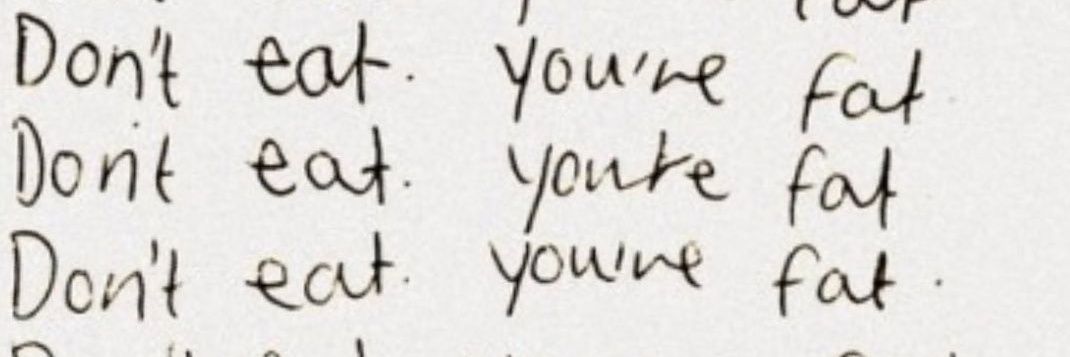 fat
Don't eat. you're fat
Don't eat. you're fat
Don't eat. you're fat.